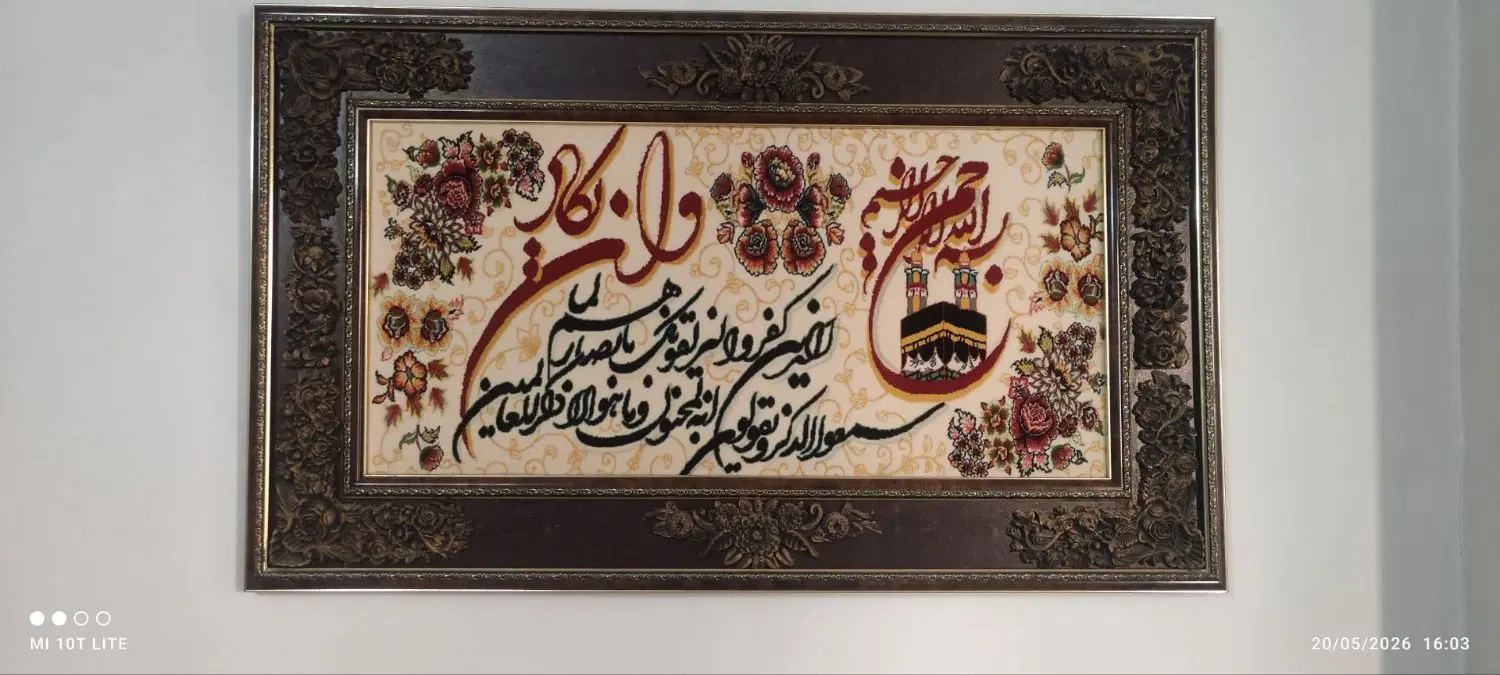 بسم الله الرحمن الرحیم
وان یکاد
الذین کفروا لیزلقونک بابصارهم لما
سمعوا الذکر و یقولون انه لمجنون و ما هو الا ذکر للعالمین
MI 10T LITE
20/05/2026 16:03